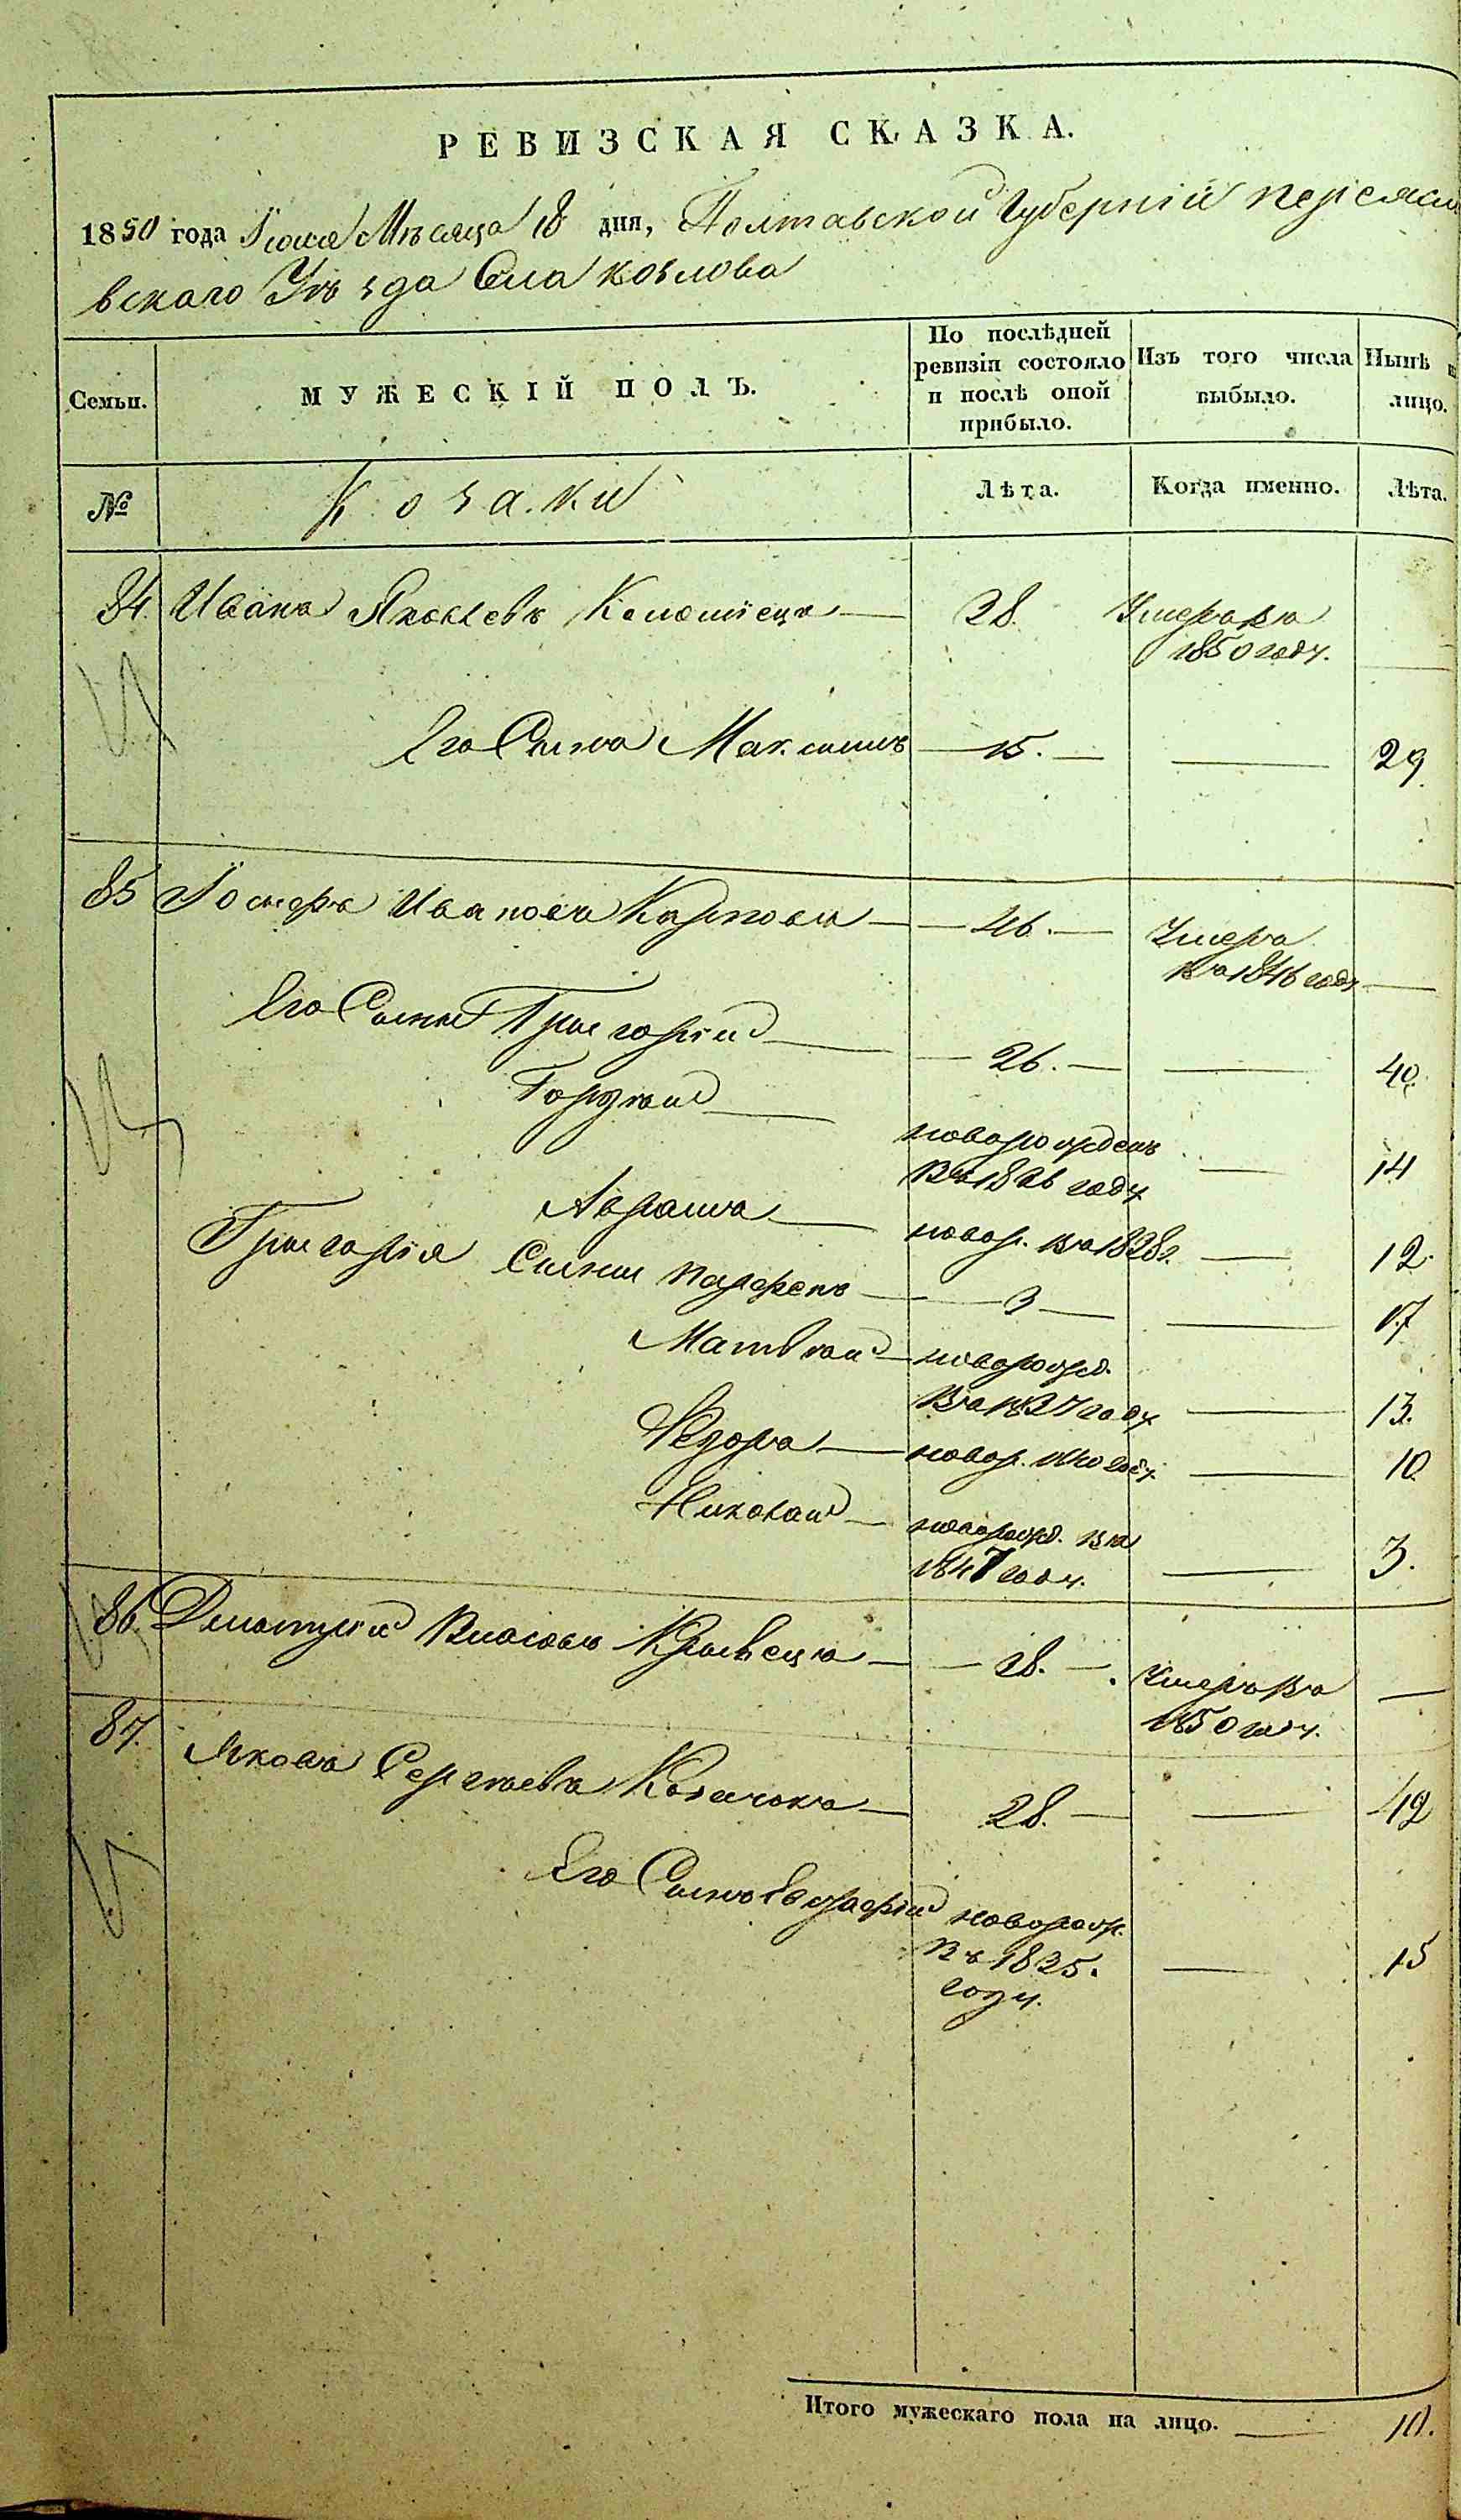 РЕВИЗСКАЯ СКАЗКА.
1850 года Іюня Мѣсяца 18 дня, Полтавской Губерніи Переясла
вскаго Уѣзда Села Козлова
Семьи.
МУЖЕСКІЙ ПОЛЪ.
По послѣдней ревизіи состояло и послѣ оной прибыло.
Изъ того числа выбыло.
Нынѣ н
лицо.
№
Козаки
Лѣта.
Когда именно.
Лѣта.
84. Иванъ Яковлевъ Коломіецъ — 38. Умеръ въ
1850 году.
Его Сынъ Максимъ — 15. — — 29.
85 Іосифъ Ивановъ Карповъ — 46. — Умеръ
въ 1846 году —
Его Сыны Григорій — 26. — — 40.
Гордѣй — новорожденъ
въ 1836 году — 14
Аврамъ — новор. въ 1838 г. — 12.
Григорія Сыны Парфенъ — 3 — — 17
Матвѣй — новорожд.
въ 1837 году — 13.
Федоръ — новор. 1840 году. — 10.
Николай — новорожд. въ
1847 году. — 3.
86. Дмитрій Власовъ Кривецъ — 28. — Умеръ въ
1850 году. —
87. Яковъ Сергѣевъ — 28. — — 42
Его Сынъ новорож.
въ 1835.
году. — 15
Итого мужескаго пола на лицо. — 10.